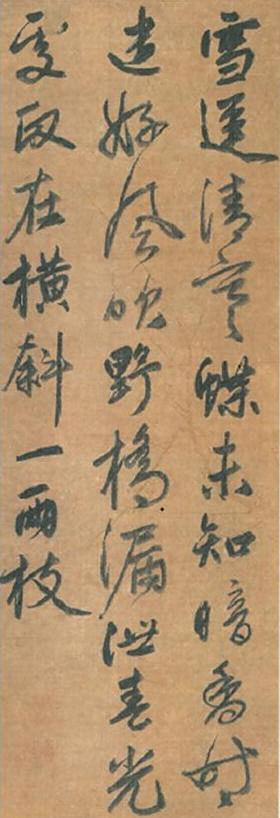 雪送清寒蝶未知暗香時
逮好風吹野橋漏泄春光
處政在橫斜一兩枝